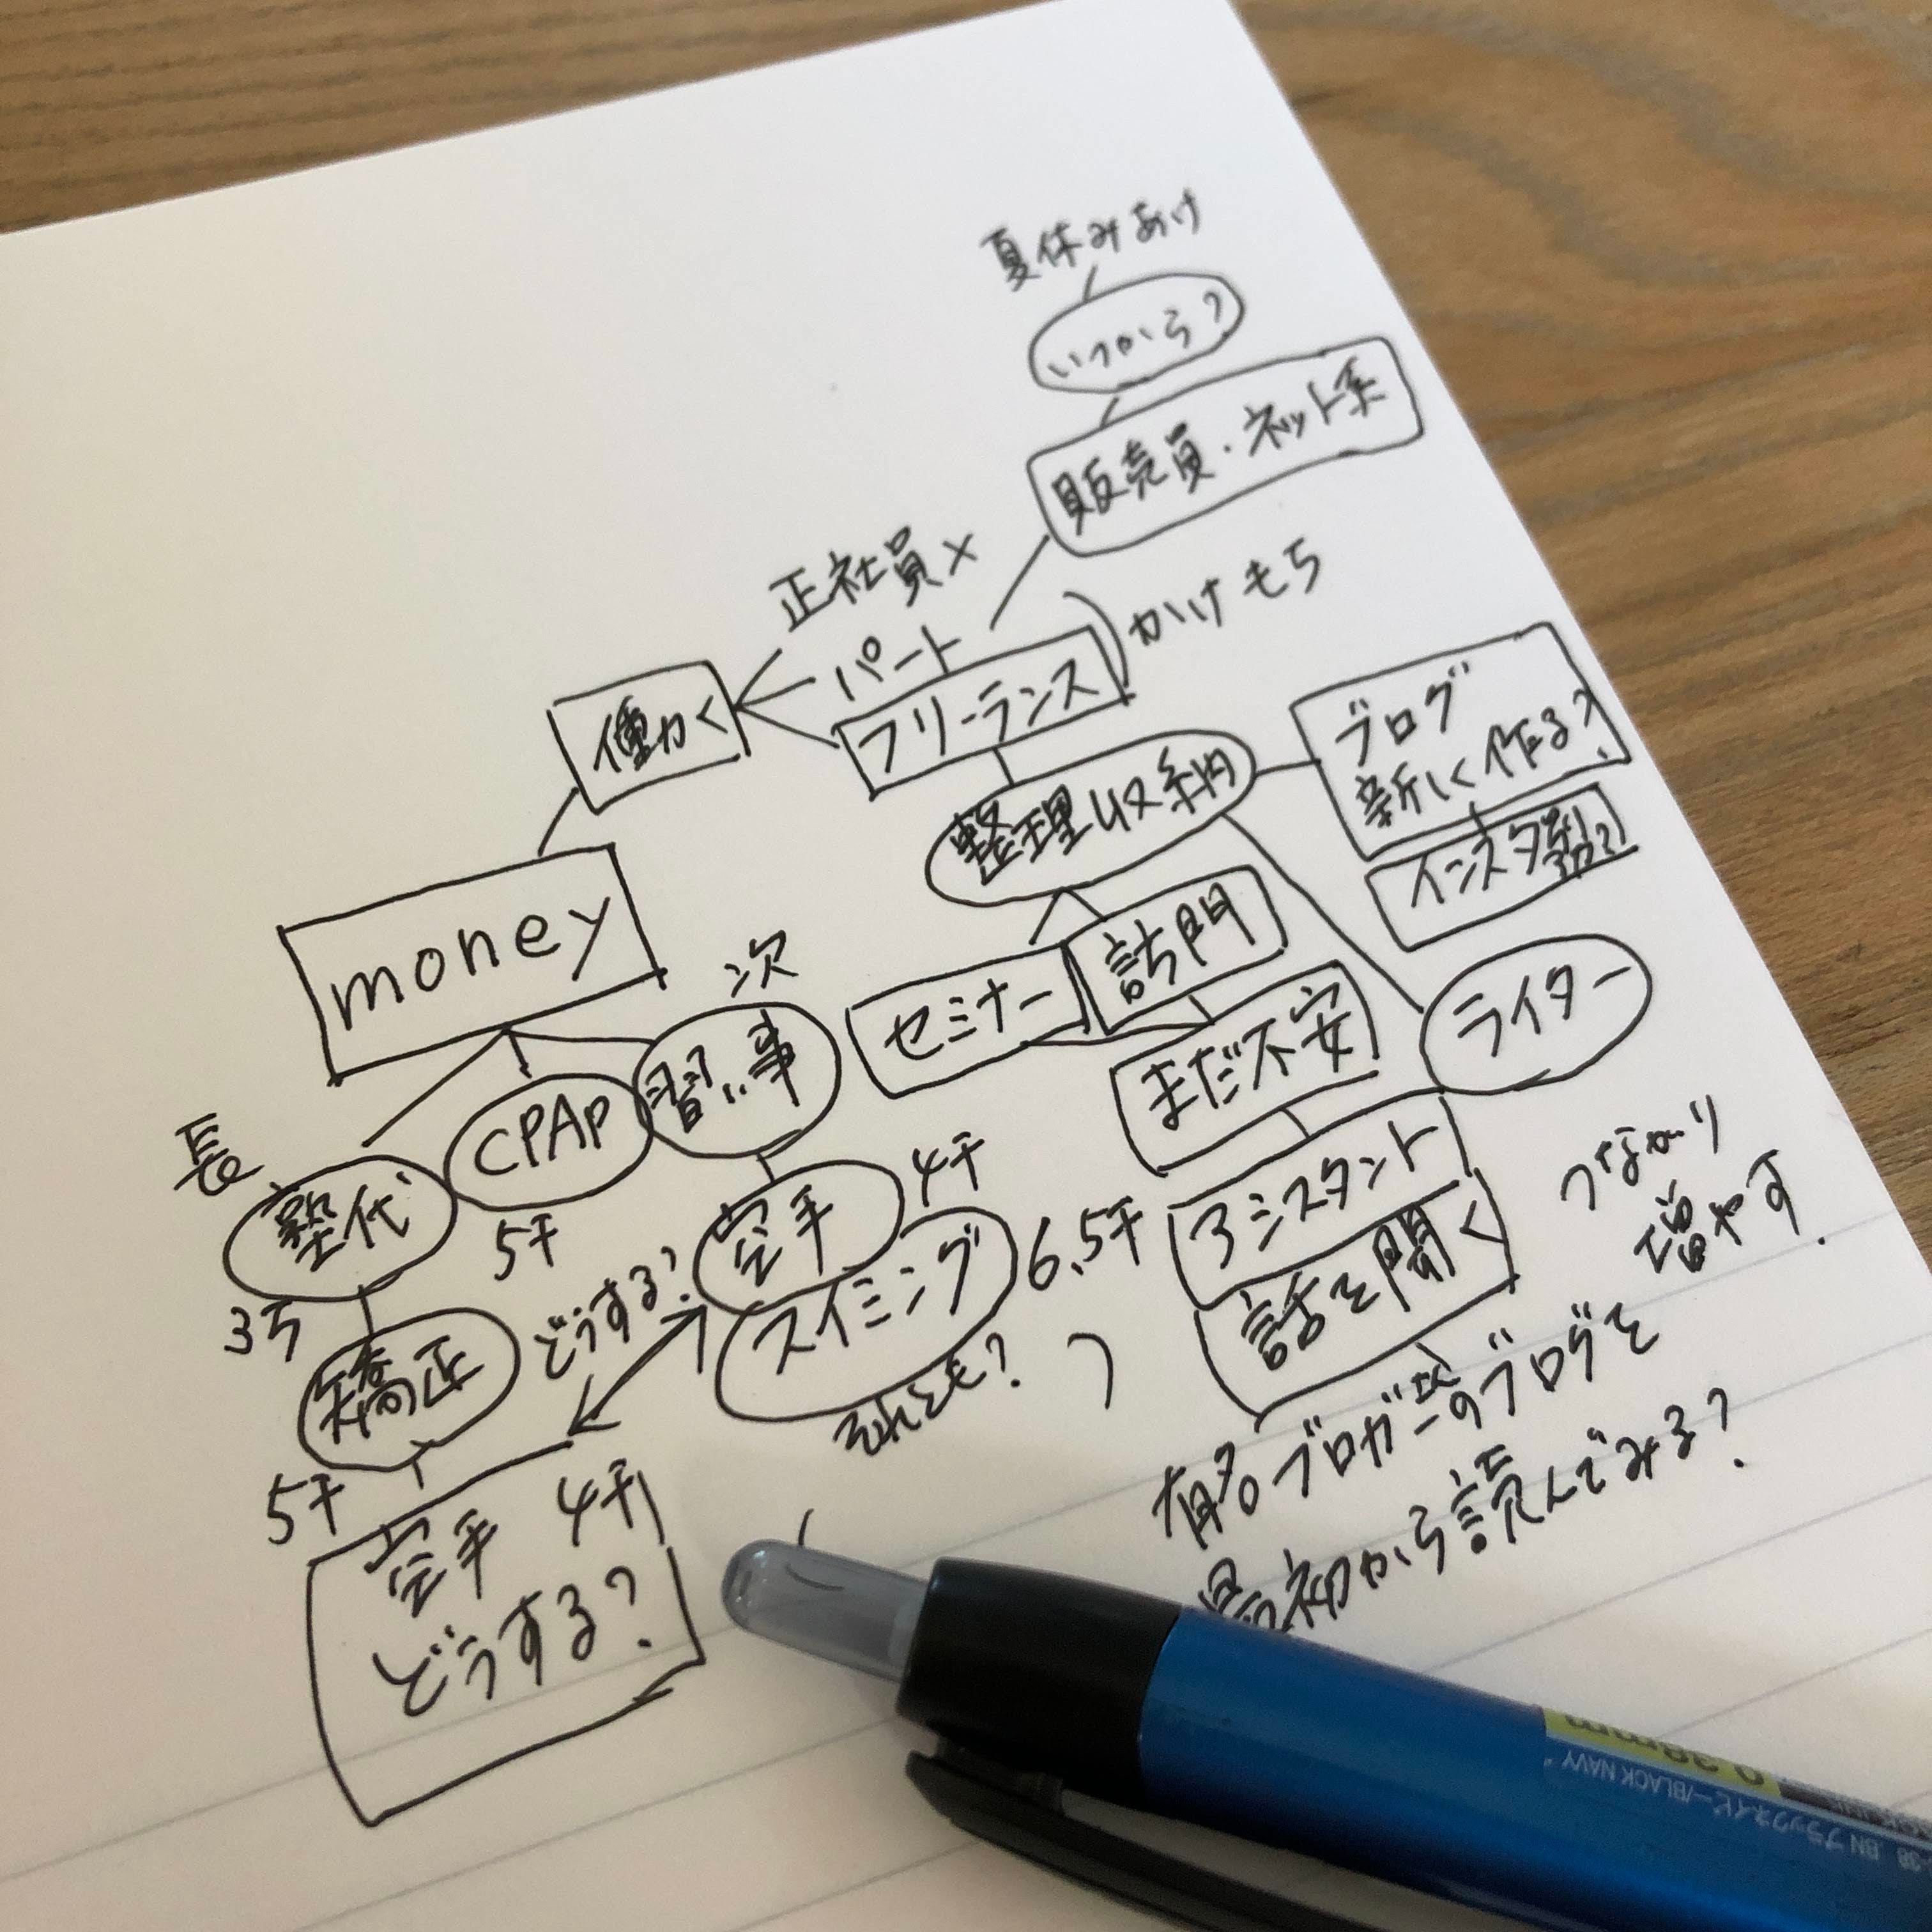 夏休みあけ
いつから?
販売員・ネット系
正社員×
パート
かけもち
働く
フリーランス
整理収納
ブログ
新しく作る?
インスタ
money
次
訪問
セミナー
まだ不安
ライター
習い事
CPAP
5千
長
塾代
3万
空手
4千
スイミング
6.5千
それとも?
どうする?
矯正
5千
空手 4千
どうする?
アシスタント
話を聞く
つながり
増やす.
有名ブロガーのブログを
最初から読んでみる?
0.38mm
BN ブラックネイビー/BLACK NAVY